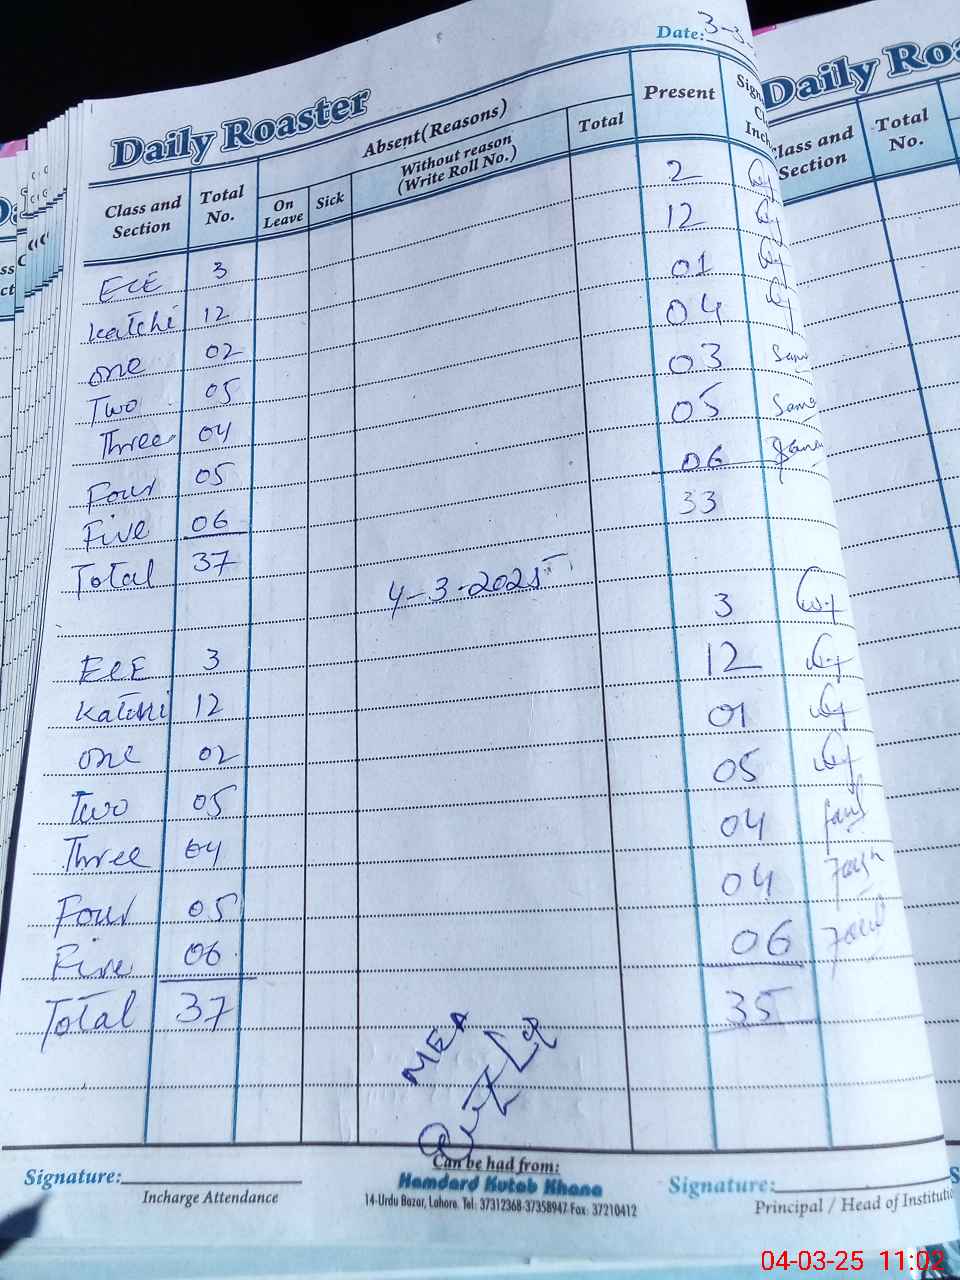 Date: 3-3-
Daily Roaster
Class and Section Total No. Absent(Reasons) On Leave Sick Without reason (Write Roll No.) Total Present
ECE 3 2
Katchi 12 12
One 02 01
Two 05 04
Three 04 03 Sana
Four 05 05 Sana
Five 06 06 Sana
Total 37 33
4-3-2025
ECE 3 3
Katchi 12 12
One 02 01
Two 05 05
Three 04 04
Four 05 04
Five 06 06
Total 37 35
MEA
Signature:
Incharge Attendance
Can be had from:
Hamdard Kutab Khana
14-Urdu Bazar, Lahore. Tel: 37312368-37358947 Fax: 37210412
Signature:
Principal / Head of Instituti
Daily Roa
Class and Section Total No.
04-03-25 11:02